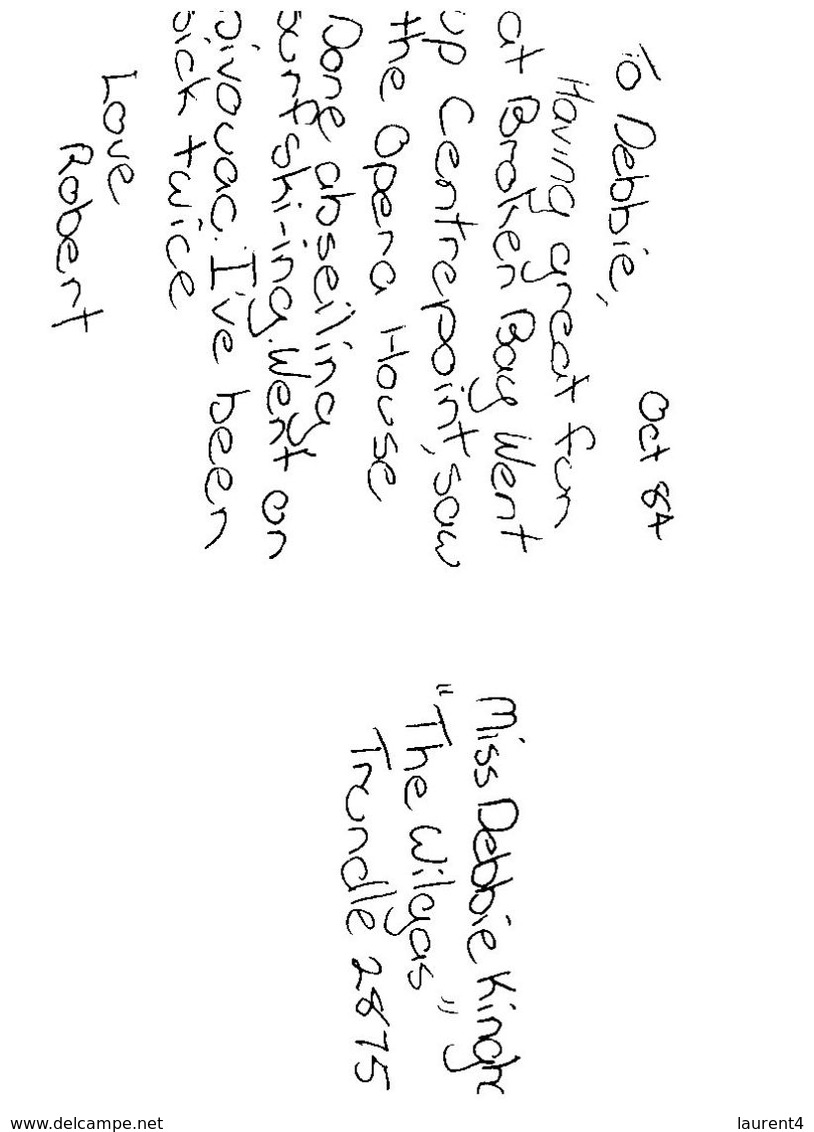 Oct 84
To Debbie,
Having great fun
at Broken Bay Went
up Centrepoint, saw
the Opera House
Done abseiling
surf ski-ing. Went on
bivouac. I've been
sick twice
Love
Robert
Miss Debbie
"The Wilgas"
Trundle 2875
www.delcampe.net
laurent4